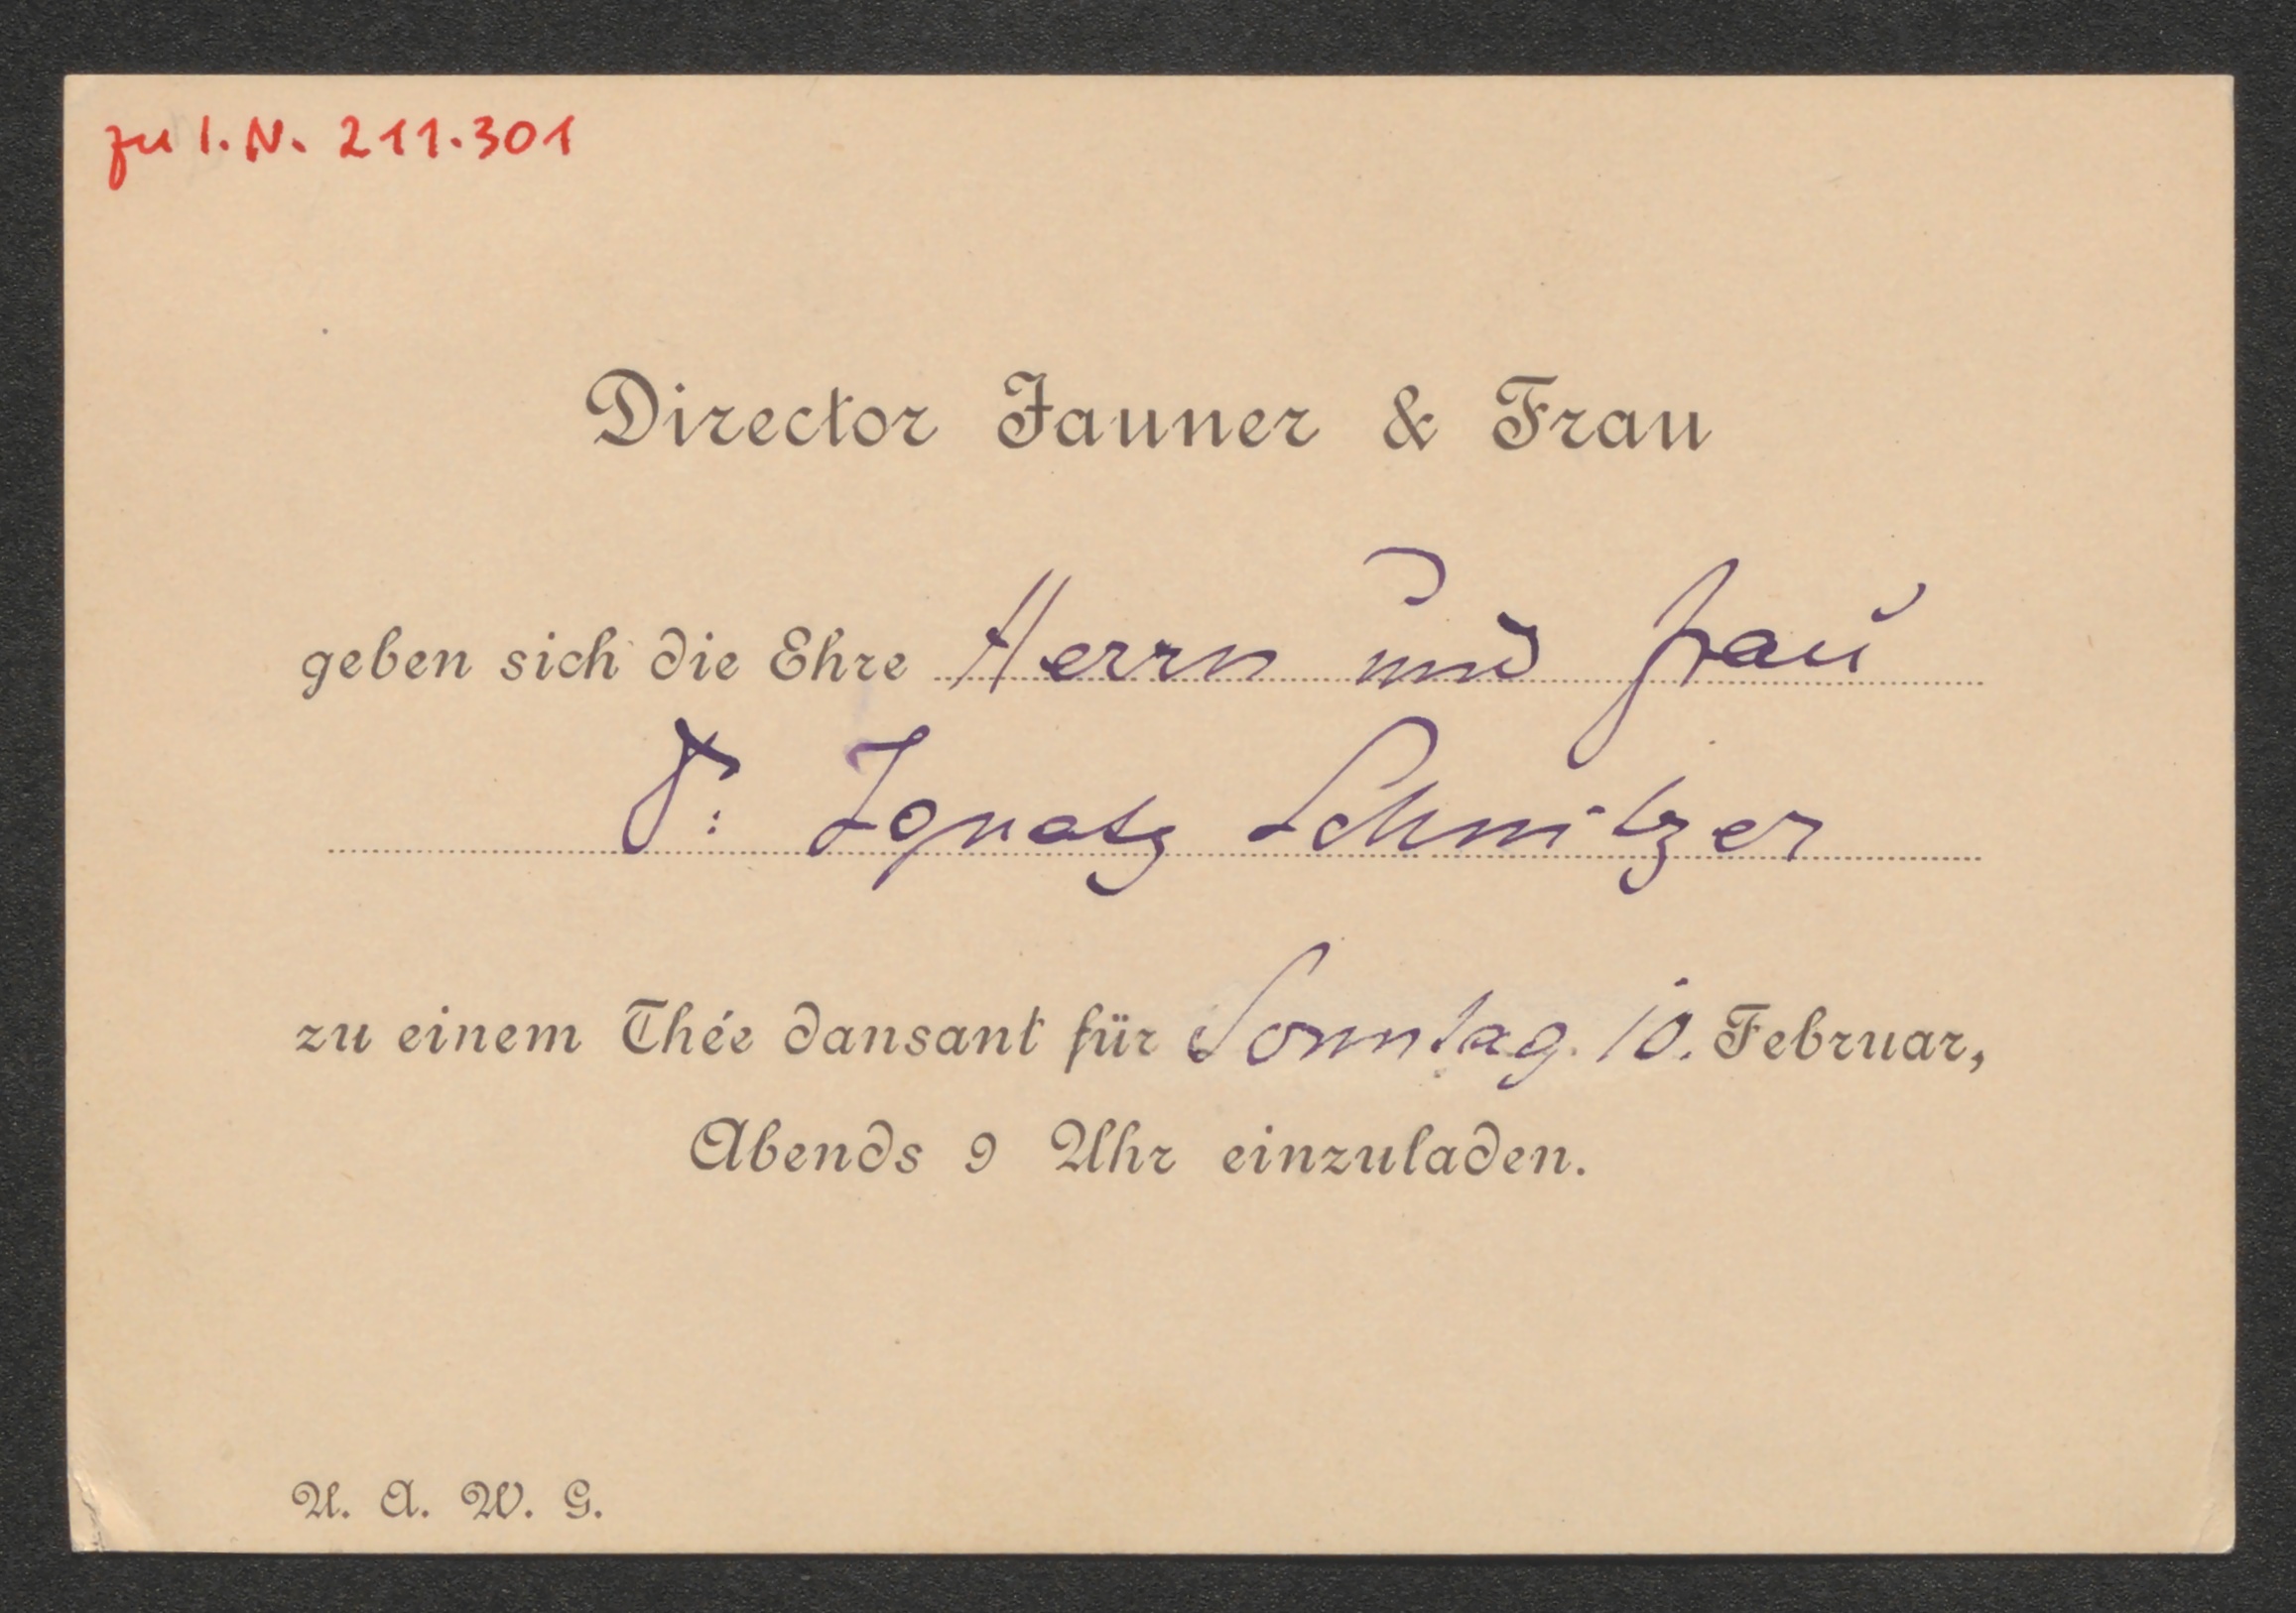 zu I.N. 211.301
Director Jauner & Frau
geben sich die Ehre Herrn und Frau
Dr: Ignatz Schnitzer
zu einem Thée dansant für Sonntag 10. Februar,
Abends 9 Uhr einzuladen.
U. A. W. G.